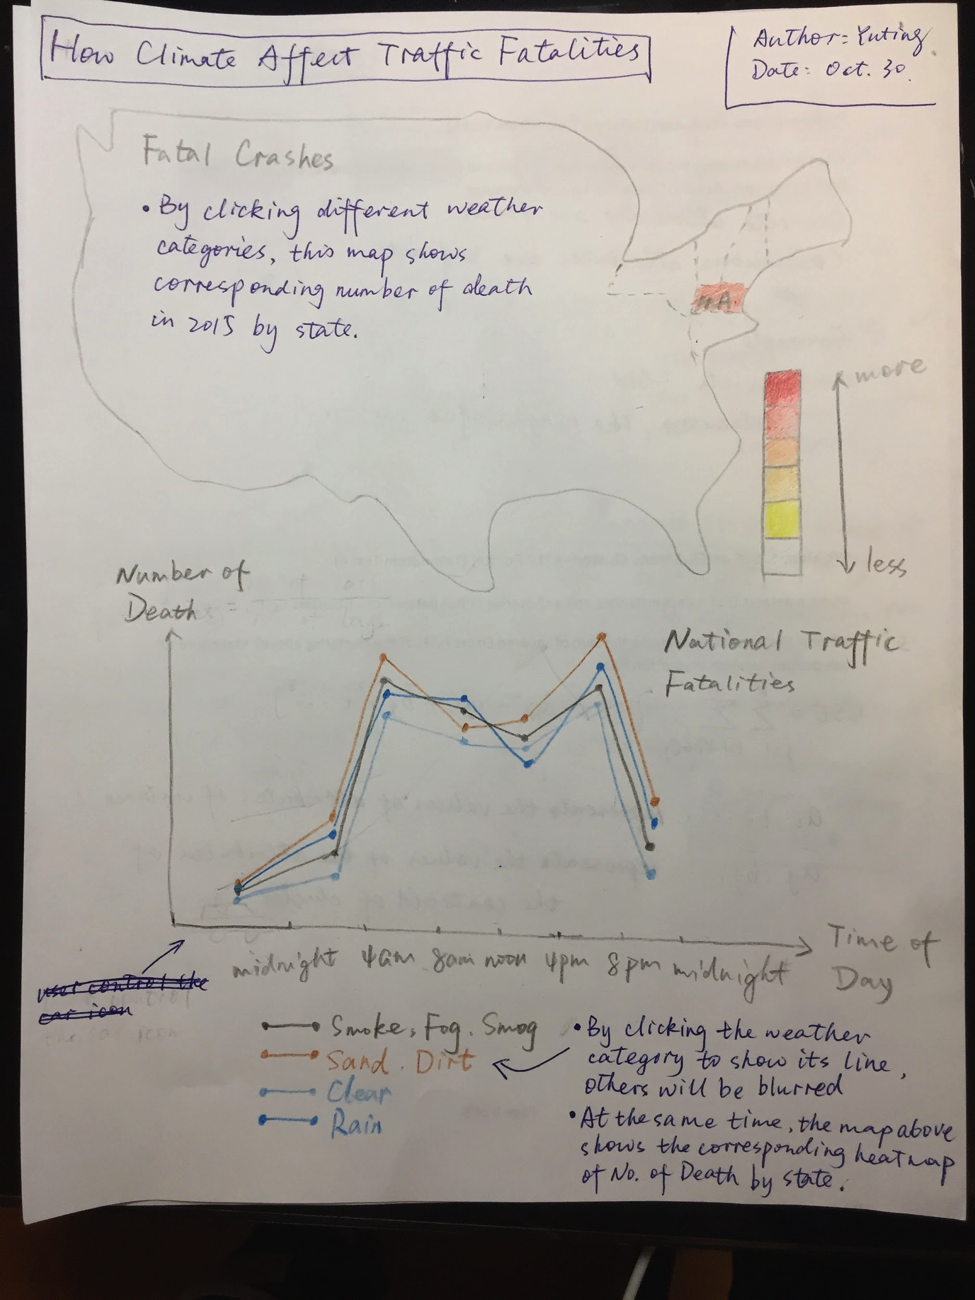 How Climate Affect Traffic Fatalities
Author: Yuting
Date: Oct. 30.
Fatal Crashes
• By clicking different weather
categories, this map shows
corresponding number of death
in 2015 by state.
MA.
more
less
Number of
Death
National Traffic
Fatalities
Time of
Day
midnight 4am 8am noon 4pm 8pm midnight
user control the
car icon
Smoke, Fog. Smog
Sand. Dirt
Clear
Rain
• By clicking the weather
category to show its line,
others will be blurred
• At the same time, the map above
shows the corresponding heatmap
of No. of Death by state.